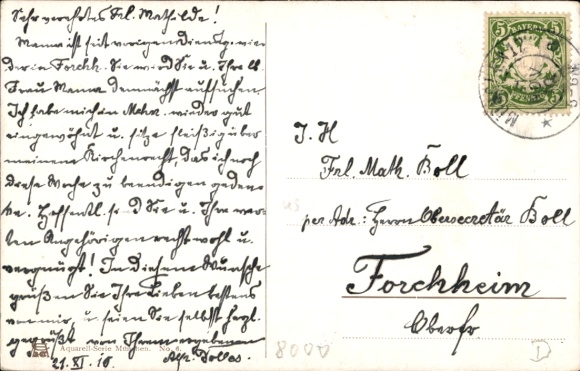 Sehr verehrtes Frl. Mathilde!
Mama ist seit vorigen Dienstg. wie-
der in Forchh. Sie wird Sie u. Ihre lb.
Frau Mama demnächst aufsuchen.
Ich habe mich in wieder gut
eingewöhnt u. sitze fleißig über
meinem Kirchenrecht, das ich noch
diese Woche zu beendigen geden-
ke. Hoffentl. sind Sie u. Ihre wer-
ten Angehörigen recht wohl u.
vergnügt! In diesem Wunsche
grüßen Sie Ihre Lieben bestens
von mir, u. seien Sie selbst herzl.
gegrüßt von Ihrem ergebenen
Aquarell-Serie München. No. 6.
21. XI. 10.
5 BAYERN 5
5 PFENNIG 5
I. H
Frl. Math. Boll
per Adr.: Herrn Obersecretär Boll
Forchheim
Oberfr
8000
D